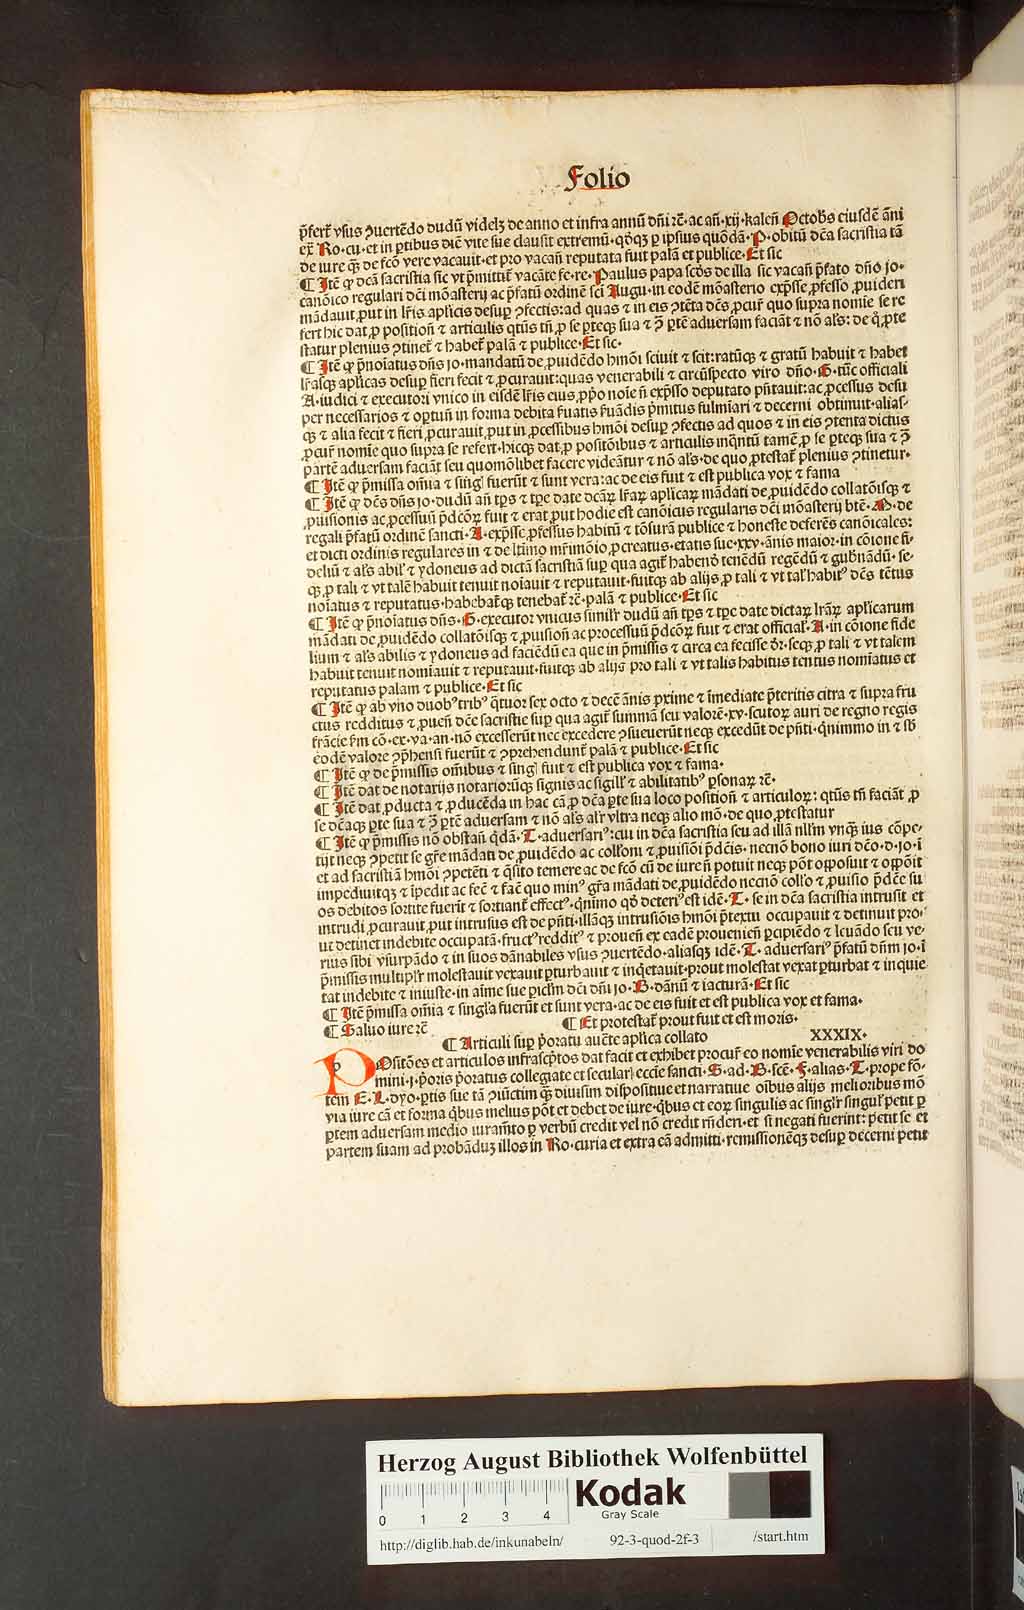 Folio
p̄fert̄ vsus ꝯuertēdo dudū videlꝫ de anno et infra annū dn̄i ꝛc̄·ac an̄·xij·kalen̄ Octobs̄ eiusdē āni
ex̄ Ro·cu·et in ꝑtibus diē vite sue clausit extremū·qd̓qꝫ ꝑ ipsius quōdā·P·obitū dc̄a sacristia tā
de iure qꝫ de fcō vere vacauit·et pro vacan̄ reputata fuit palā et publice·Et sic
¶ Itē ꝙ dc̄ā sacristia sic vt p̄mittit̄ vacāte fe·re·Paulus papa scd̄s de illa sic vacan̄ p̄fato dn̄o jo·
canōico regulari dc̄i mōasterij ac p̄fatū ordinē sc̄i Augu·in eodē mōasterio exp̄sse ꝓfesso ꝓuideri
mādauit ꝓut in lr̄is aplicis desuꝑ ꝯfectis:ad quas ⁊ in eis ꝯtēta dc̄s ꝓcur̄ quo supra nomīe se re
fert hic dat ꝓ position̄ ⁊ articulis qtūs tn̄ ꝓ se ꝑteqꝫ sua ⁊ ꝯ̄ ꝑtē aduersam faciāt ⁊ nō als̄: de q̊ ꝓte
statur plenius ꝯtinet̄ ⁊ habet̄ palā ⁊ publice·Et sic·
¶ Itē ꝙ p̄noīatus dn̄s jo·mandatū de ꝓuidēdo hmōi sciuit ⁊ scit:ratūqꝫ ⁊ gratū habuit ⁊ habet
lr̄asqꝫ aplicas desuꝑ fieri fecit ⁊ ꝓcurauit:quas venerabili ⁊ circūspecto viro dn̄o·G·tūc officiali
A·iudici ⁊ executori vnico in eisdē lr̄is eius ꝓpo̓ noīe n̄ exp̄sso deputato pn̄tauit:ac ꝓcessus desu
per necessarios ⁊ optun̄ in forma debita ẜuatis ẜuādis p̄mitus fulmīari ⁊ decerni obtinuit·alias
qꝫ ⁊ alia fecit ⁊ fieri ꝓcurauit ꝓut in ꝓcessibus hmōi desuꝑ ꝯfectis ad quos ⁊ in eis ꝯtenta dictus
ꝓcur̄ nomīe quo supra se refert·hicqꝫ dat ꝓ positōibus ⁊ articulis inqn̄tū tamē ꝓ se ꝑteqꝫ sua ⁊ ꝯ̄
partē aduersam faciāt seu quomōlibet facere videātur ⁊ nō als̄·de quo ꝓtestat̄ plenius ꝯtinetur·
¶ Itē ꝙ p̄missa oīa ⁊ sing̓l̓ fuerūt ⁊ sunt vera:ac de eis fuit ⁊ est publica vox ⁊ fama
¶ Itē ꝙ dc̄s dn̄s jo·dudū an̄ tp̄s ⁊ tp̄e date dc̄aꝝ lr̄aꝝ aplicaꝝ mādati de ꝓuidēdo collatōisqꝫ ⁊
ꝓuisionis ac ꝓcessuū p̄dcōꝝ fuit ⁊ erat ꝓut hodie est canōicus regularis dc̄i mōasterij btē·M·de
regali p̄fatū ordinē sancti·A·exp̄sse ꝓfessus habitū ⁊ tōsurā publice ⁊ honeste deferēs canōicales:
et dicti ordinis regulares in ⁊ de ltimo mr̄imōio ꝓcreatus·etatis sue·xxv·ānis maior·in cōione fi̓
deliū ⁊ als̄ abil̓ ⁊ ydoneus ad dictā sacristiā suꝑ qua agit̄ habenō tenēdū regēdū ⁊ gub̄nādū·se·
qꝫ ꝓ tali ⁊ vt talē habuit tenuit noīauit ⁊ reputauit·fuitqꝫ ab alijs ꝓ tali ⁊ vt tal̓ habit⁹ dc̄s tētus
noīatus ⁊ reputatus·habebat̄qꝫ tenebat̄ ꝛc̄·palā ⁊ publice·Et sic
¶ Itē ꝙ p̄noīatus dn̄s·G·executor vnicus simil̓r dudū an̄ tp̄s ⁊ tp̄e date dictaꝝ lr̄aꝝ aplicarum
mādati de ꝓuidēdo collatōisqꝫ ⁊ ꝓuision̄ ac processuū p̄dcōꝝ fuit ⁊ erat official̓·A·in cōione fide
lium ⁊ als̄ abilis ⁊ ydoneus ad faciēdū ea que in p̄missis ⁊ circa ea fecisse dr̄·seqꝫ ꝓ tali ⁊ vt talem
habuit tenuit nomīauit ⁊ reputauit·fuitqꝫ ab alijs pro tali ⁊ vt talis habitus tentus nomīatus et
reputatus palam ⁊ publice·Et sic
¶ Itē ꝙ ab vno duob⁹ trib⁹ q̄tuor sex octo ⁊ decē ānis ꝓxime ⁊ īmediate p̄teritis citra ⁊ supra fru
ctus redditus ⁊ ꝓuen̄ dc̄e sacristie suꝑ qua agit̄ summā seu valorē·xv·scutoꝝ auri de regno regis
frācie ẜm cō·ex·va·an·nō excesserūt nec excedere ꝯsueuerūt neqꝫ excedūt de pn̄ti·q̓nimmo in ⁊ sb̄
eodē valore ꝯp̄hensi fuerūt ⁊ ꝯprehendunt̄ palā ⁊ publice·Et sic
¶ Itē ꝙ de p̄missis om̄ibus ⁊ sing̓l̓ fuit ⁊ est publica vox ⁊ fama·
¶ Itē dat de notarijs notarioꝝqꝫ signis ac sigill̓ ⁊ abilitatib⁹ ꝑsonaꝝ ꝛc̄·
¶ Itē dat ꝓducta ⁊ ꝓducēda in hac cā ꝓ dc̄a ꝑte sua loco position̄ ⁊ articuloꝝ: qtūs tn̄ faciāt ꝓ
se dc̄aqꝫ ꝑte sua ⁊ ꝯ̄ ꝑtē aduersam ⁊ nō als̄ alr̄ vltra neqꝫ alio mō·de quo ꝓtestatur
¶ Itē ꝙ p̄missis nō obstan̄ q̓dā·T·aduersari⁹:cui in dc̄a sacristia seu ad illā nll̓m vnqꝫ ius cōpe·
tijt neqꝫ ꝯpetit se gr̄e mādati de ꝓuidēdo ac coll̓oni ⁊ ꝓuisiōi p̄dc̄is·necnō bono iuri dc̄o·d·jo·ī
et ad sacristiā hmōi ꝯpetēti ⁊ q̓sito temere ac de fcō cū de iure n̄ potuit neqꝫ pōt opposuit ⁊ oppōit
impediuitqꝫ ⁊ īpedit ac fec̄ ⁊ fac̄ quo min⁹ gr̄a mādati de ꝓuidēdo necnō coll̓o ⁊ ꝓuisio p̄dc̄e su
os debitos sortite fuerīt ⁊ sortiant̄ effect⁹·q̓nimo qd̓ deteri⁹ est idē·T·se in dc̄a sacristia intrusit et
intrudi ꝓcurauit ꝓut intrusus est de pn̄ti·illāqꝫ intrusiōis hmōi p̄textu occupauit ⁊ detinuit pro·
ut detinet indebite occupatā·fruct⁹ reddit⁹ ⁊ prouen̄ ex eadē prouenien̄ ꝑcipiēdo ⁊ leuādo seu ve·
rius sibi vsurpādo ⁊ in suos dānabiles vsus ꝯuertēdo·aliasqꝫ idē·T·aduersari⁹ p̄fatū dn̄m jo·ī
p̄missis multipl̓r molestauit vexauit ꝑturbauit ⁊ inq̓etauit·prout molestat vexat ꝑturbat ⁊ inquie
tat indebite ⁊ iniuste·in aīme sue piclm̄ dc̄i dn̄i jo·B·dānū ⁊ iacturā·Et sic
¶ Itē p̄missa oīa ⁊ singl̓a fuerūt et sunt vera·ac de eis fuit et est publica vox et fama·
¶ Saluo iure ꝛc̄ ¶ Et protestat̄ prout fuit et est moris·
¶ Articuli suꝑ p̓oratu auc̄te aplica collato XXXIX·
POsitōes et articulos infrascp̄tos dat facit et exhibet procur̄ eo nomīe venerabilis viri do
mini·j·p̓oris p̓oratus collegiate et secular̓ ecc̄ie sancti·S·ad·B·scē·F·alias·T·prope fō·
tem E·L·dyo·ꝑtis sue tā ꝯiūctim qꝫ diuisim dispositiue et narratiue oībus alijs melioribus mō
via iure cā et forma q̓bus melius pōt et debet de iure·q̓bus et eoꝝ singulis ac singl̓r singul̓ petit ꝑ
ꝑtem aduersam medio iuramēto ꝑ verbū credit vel nō credit rn̄deri·et si negati fuerint: petit se et
partem suam ad probāduꝫ illos in Ro·curia et extra eā admitti·remissionēqꝫ desuꝑ decerni petit
Herzog August Bibliothek Wolfenbüttel
0 1 2 3 4
Kodak
Gray Scale
http://diglib.hab.de/inkunabeln/ 92-3-quod-2f-3 /start.htm